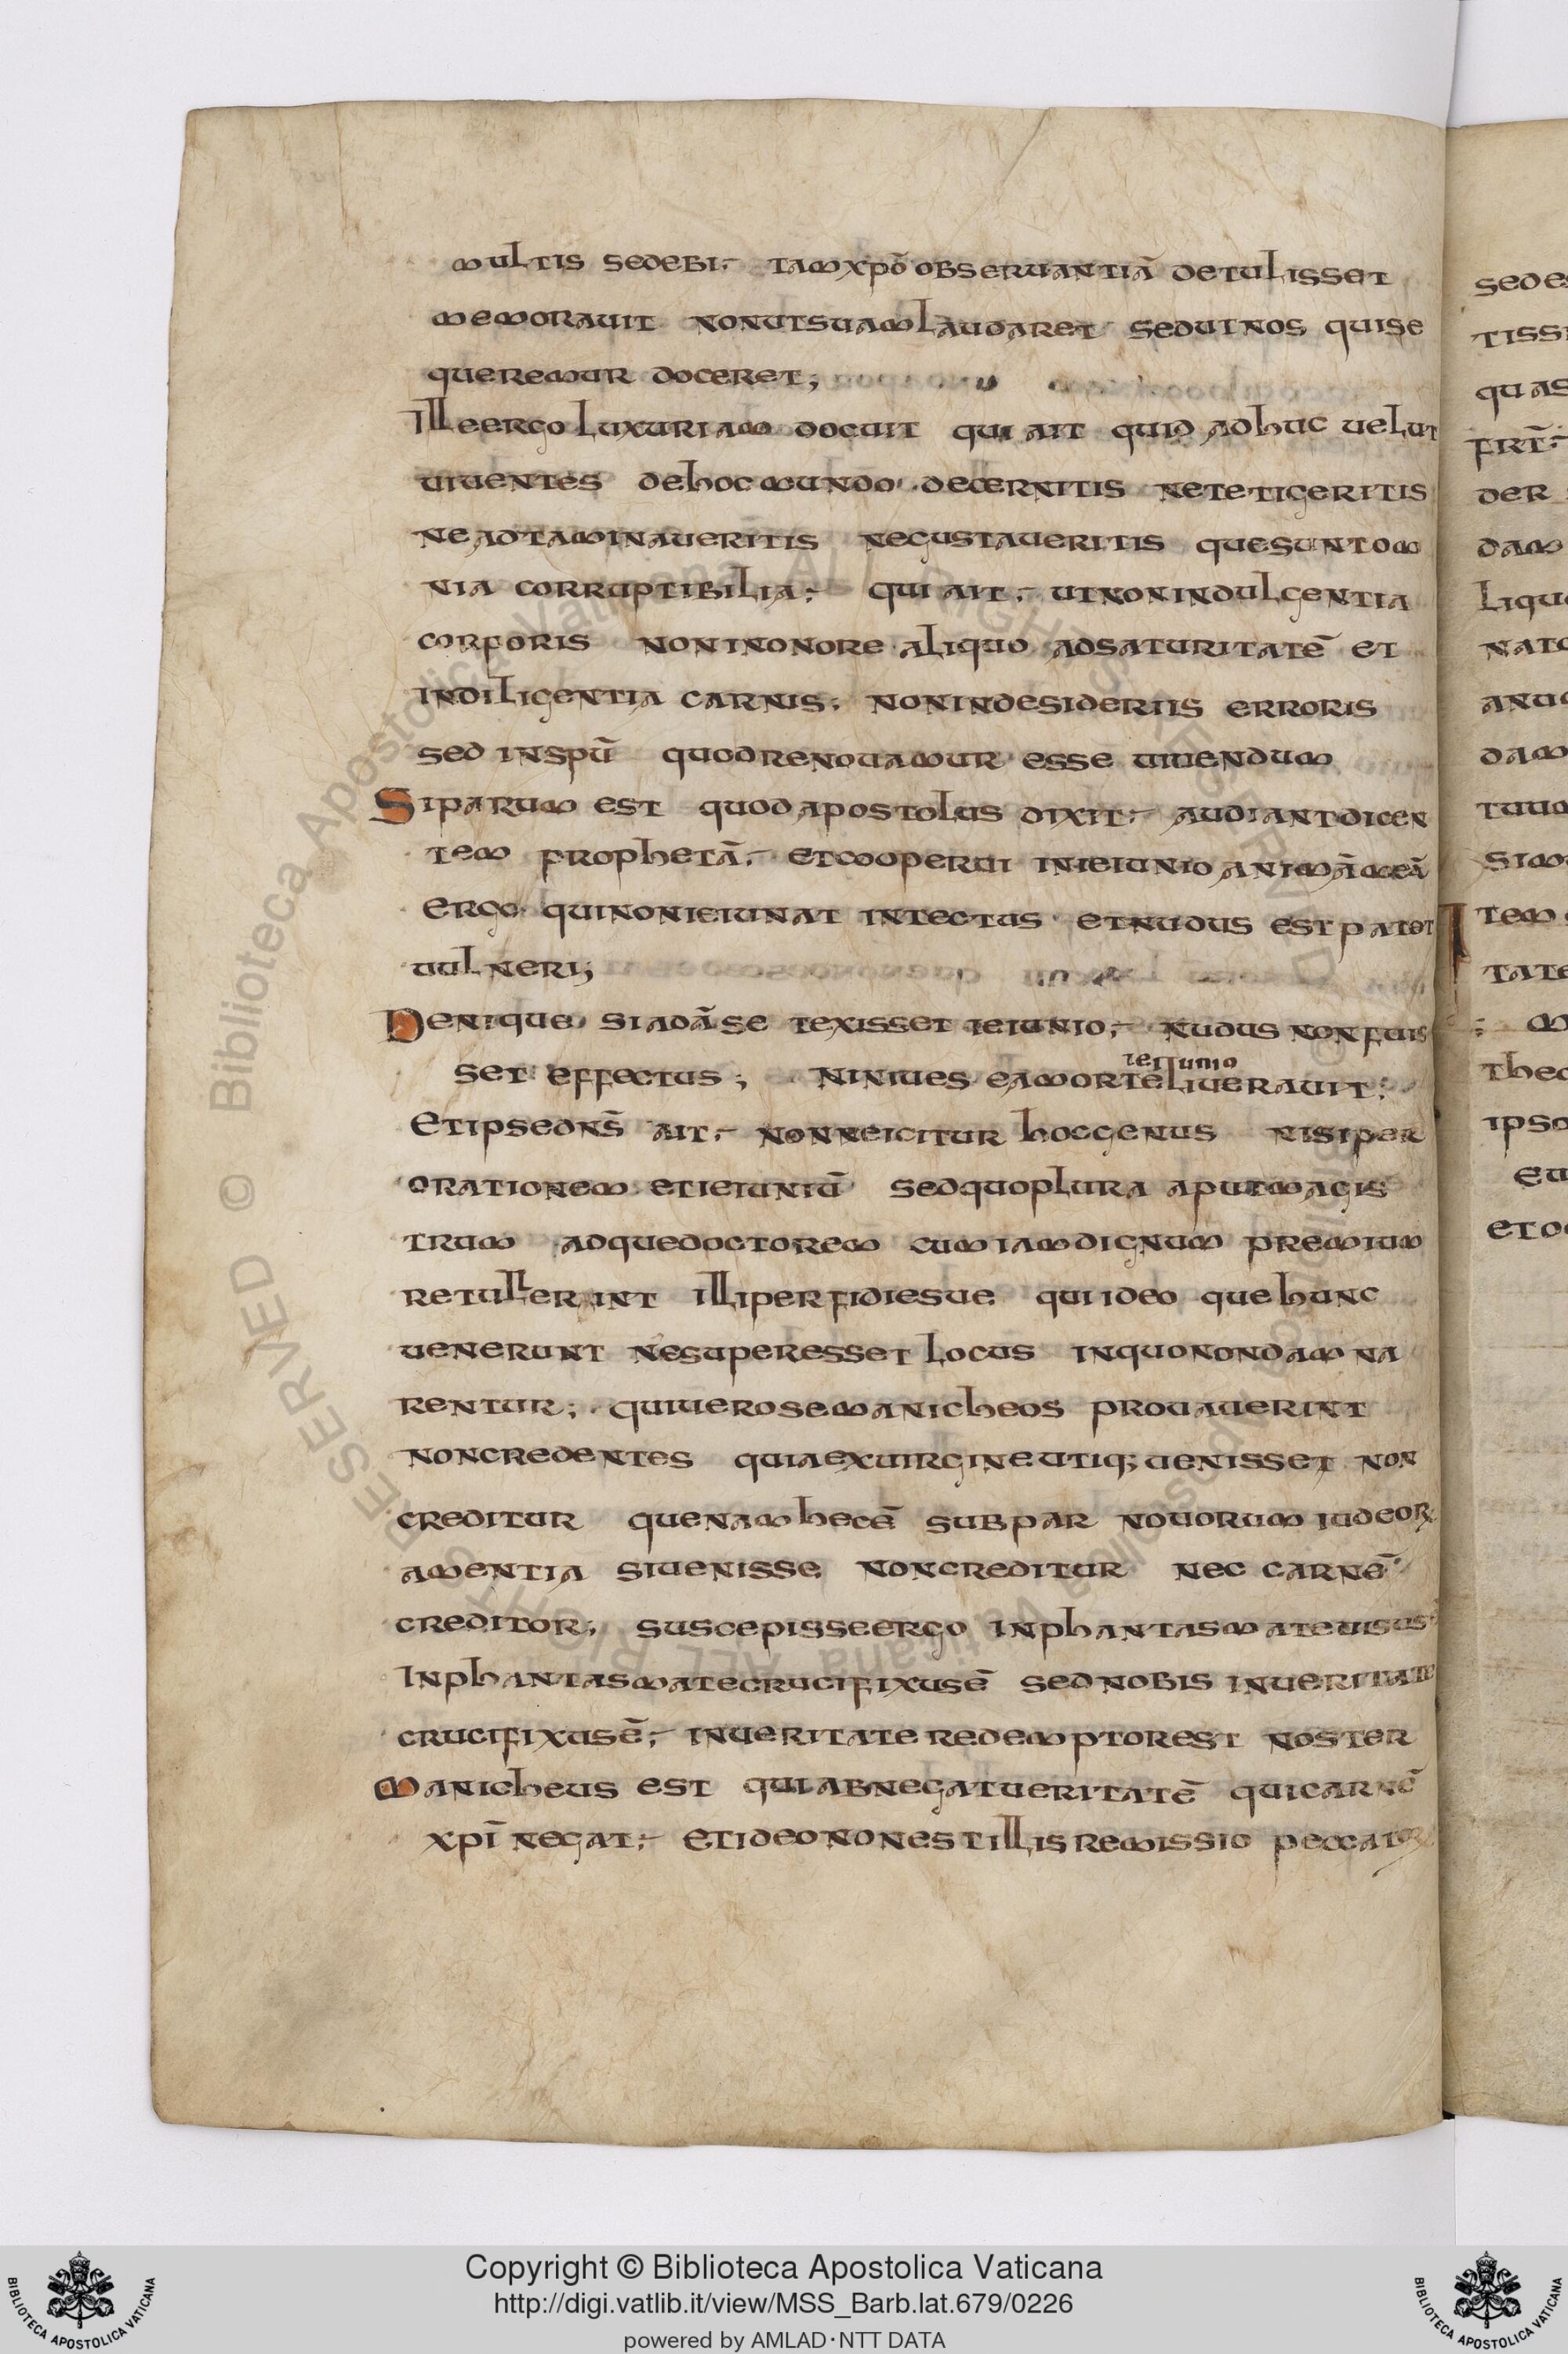 multis sedebi⁊ tamxpō obseruantiā detulisset
memorauit nonutsuamlaudaret sedutnos quise
queremur doceret;
Illeergo luxuriam docuit qui ait quid adhuc uelut
uiuentes dehocmundo decernitis netetigeritis
neadtaminaueritis negustaueritis quesuntom
nia corruptibilia; qui ait, utnonindulgentia
corporis noninonore aliquo adsaturitatē et
indiligentia carnis; nonindesideriis erroris
sed inspū quodrenouamur esse uiuendum
Siparum est quodapostolus dixit; audiantdicen
tem prophetā, etcooperui inieiunio animāmeā
ergo quinonieiunat intectus etnudus est patet
uulneri;
Denique siadāse texisset ieiunio, nudus nonfuis
set effectus; niniues eamorteliuerauit;
ieiunio
Etipsedns̄ ait, nonneicitur hocgenus nisiper
orationem etieiuniū sedquoplura aputmagis
trum adquedoctorem cumiamdignum premium
retullerint illiperfidiesue quiideo quehunc
uenerunt nesuperesset locus inquonondamna
rentur; quiuerosemanicheos prouauerint
noncredentes quiaexuirgineutiq; uenisset non
creditur quenamhecē subpar nouorum iudeor
amentia siuenisse noncreditur nec carnē
creditor; suscepisseergo inphantasmateuisus
Inphantasmatecrucifixusē sednobis inueritate
crucifixusē, inueritateredemptorest noster
Manicheus est quiabnegatueritatē quicarnē
xpī negat; etideononestillisremissio peccator
sede
tiss
quas
frt̄
der
dam
liqu
nato
anu
dam
tuu
sim
Item
tate
; m
thec
ipso
eu
eto
Copyright © Biblioteca Apostolica Vaticana
http://digi.vatlib.it/view/MSS_Barb.lat.679/0226
powered by AMLAD·NTT DATA
BIBLIOTECA APOSTOLICA VATICANA
BIBLIOTECA APOSTOLICA VATICANA